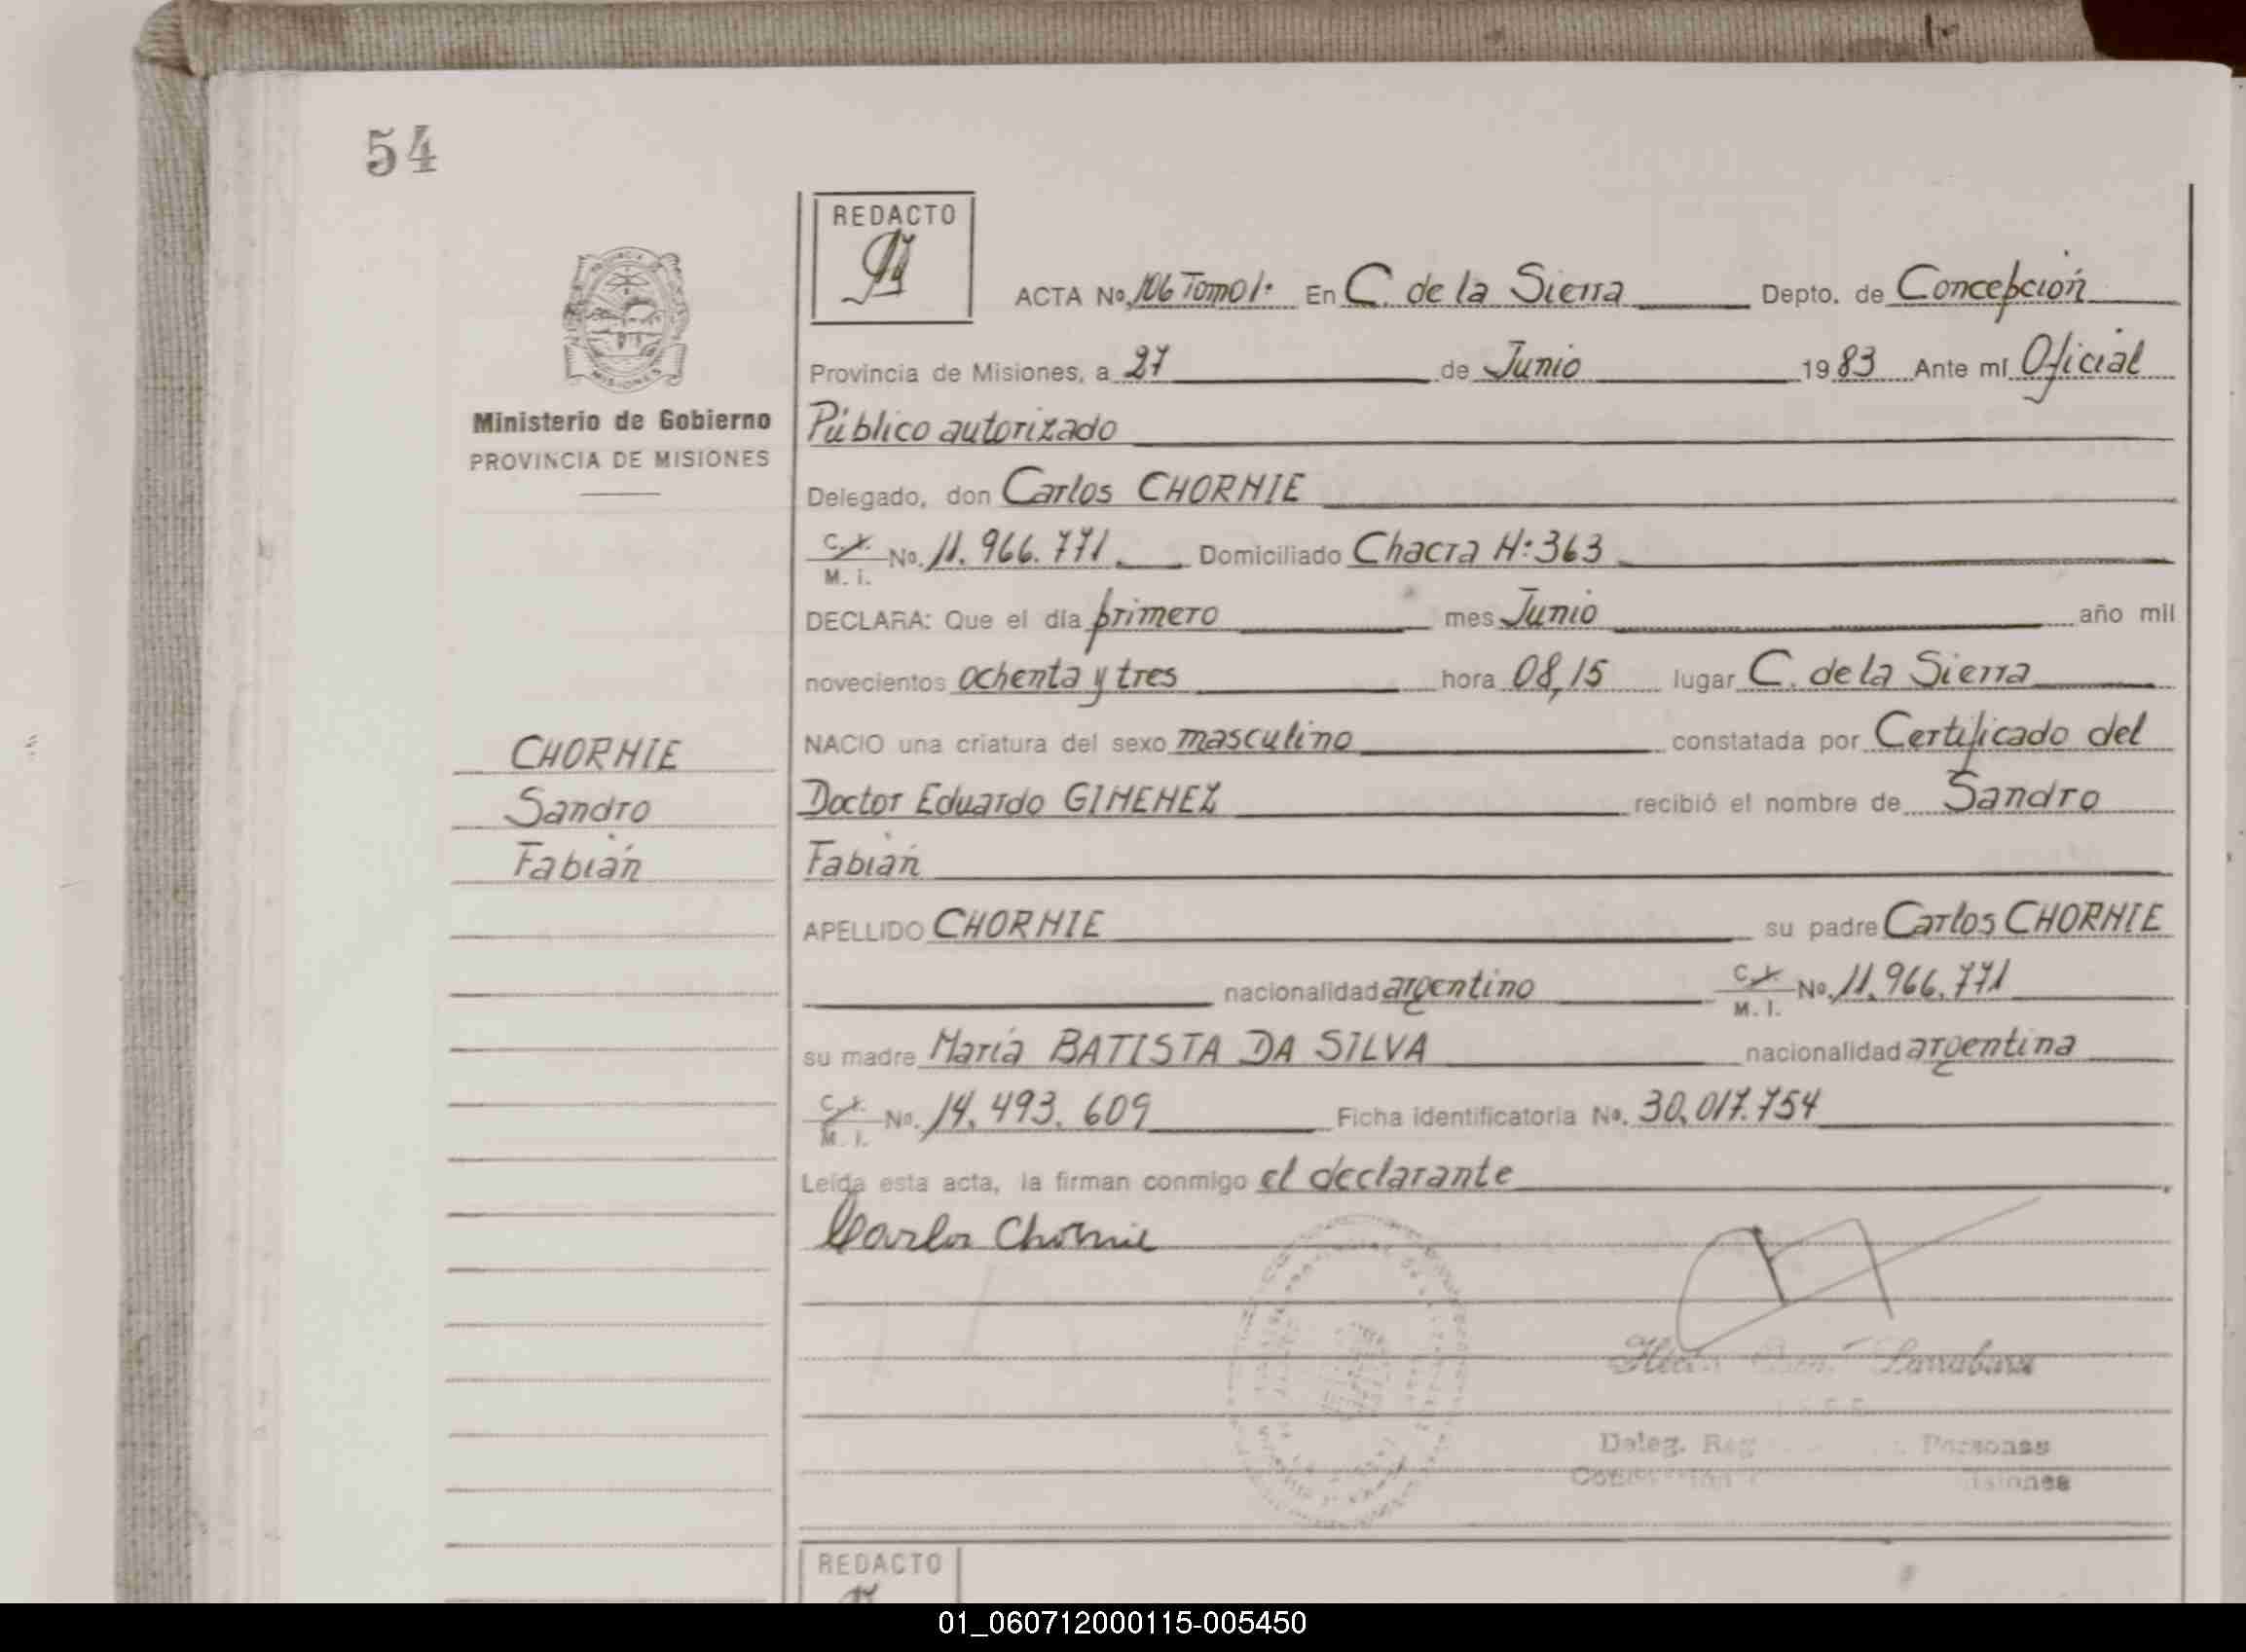 54
REDACTO
MISIONES
Ministerio de Gobierno
PROVINCIA DE MISIONES
ACTA No. 106 Tomo 1º En C. de la Sierra Depto. de Concepción
Provincia de Misiones, a 27 de Junio 1983 Ante mí Oficial
Público autorizado
Delegado, don Carlos CHORNIE
C. I. M. I. No. 11.966.771. Domiciliado Chacra N:363
DECLARA: Que el día primero mes Junio año mil
novecientos ochenta y tres hora 08,15 lugar C. de la Sierra
NACIO una criatura del sexo masculino constatada por Certificado del
Doctor Eduardo GIMENEZ recibió el nombre de Sandro
Fabián
APELLIDO CHORNIE su padre Carlos CHORNIE
nacionalidad argentino C. I. M. I. No. 11.966.771
su madre María BATISTA DA SILVA nacionalidad argentina
C. I. M. I. No. 14.493.609 Ficha identificatoria No. 30.017.754
Leída esta acta, la firman conmigo el declarante.
CHORNIE
Sandro
Fabián
Carlos Chornie
Deleg. Personas
REDACTO
01_060712000115-005450